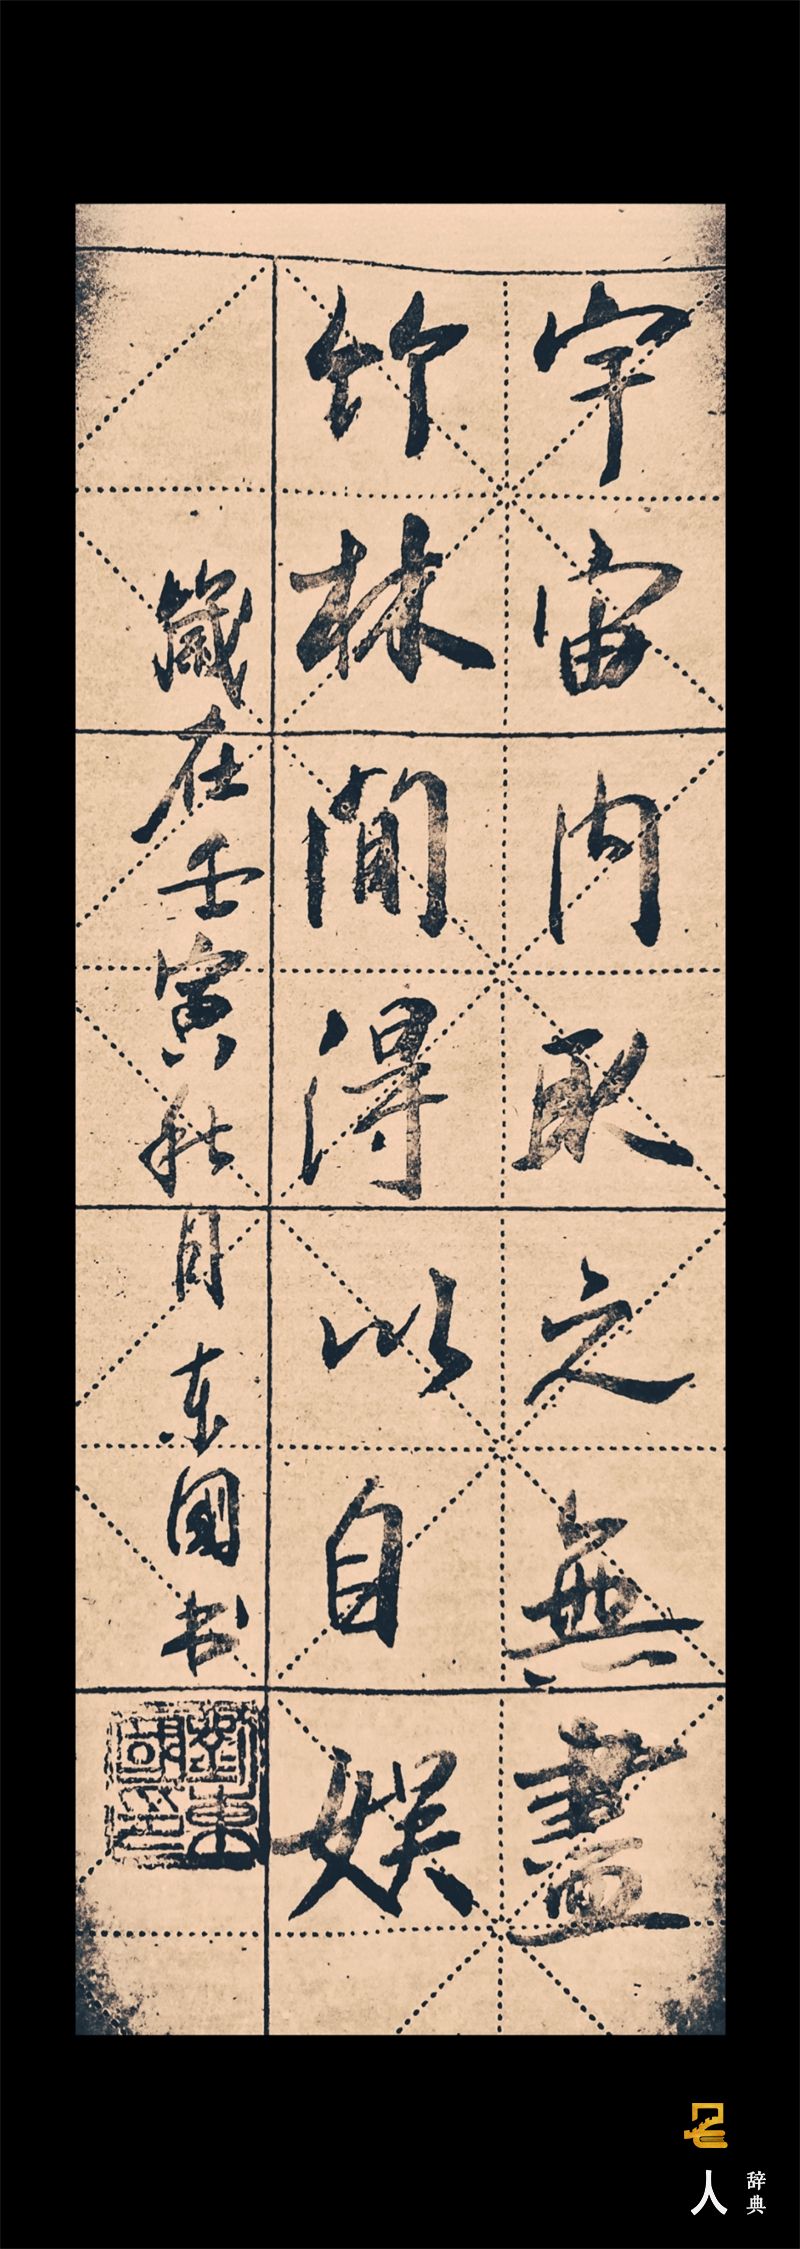 宇宙内取之無盡
竹林間得以自娱
歲在壬寅秋月东國书
劉東國印
名人
辞典